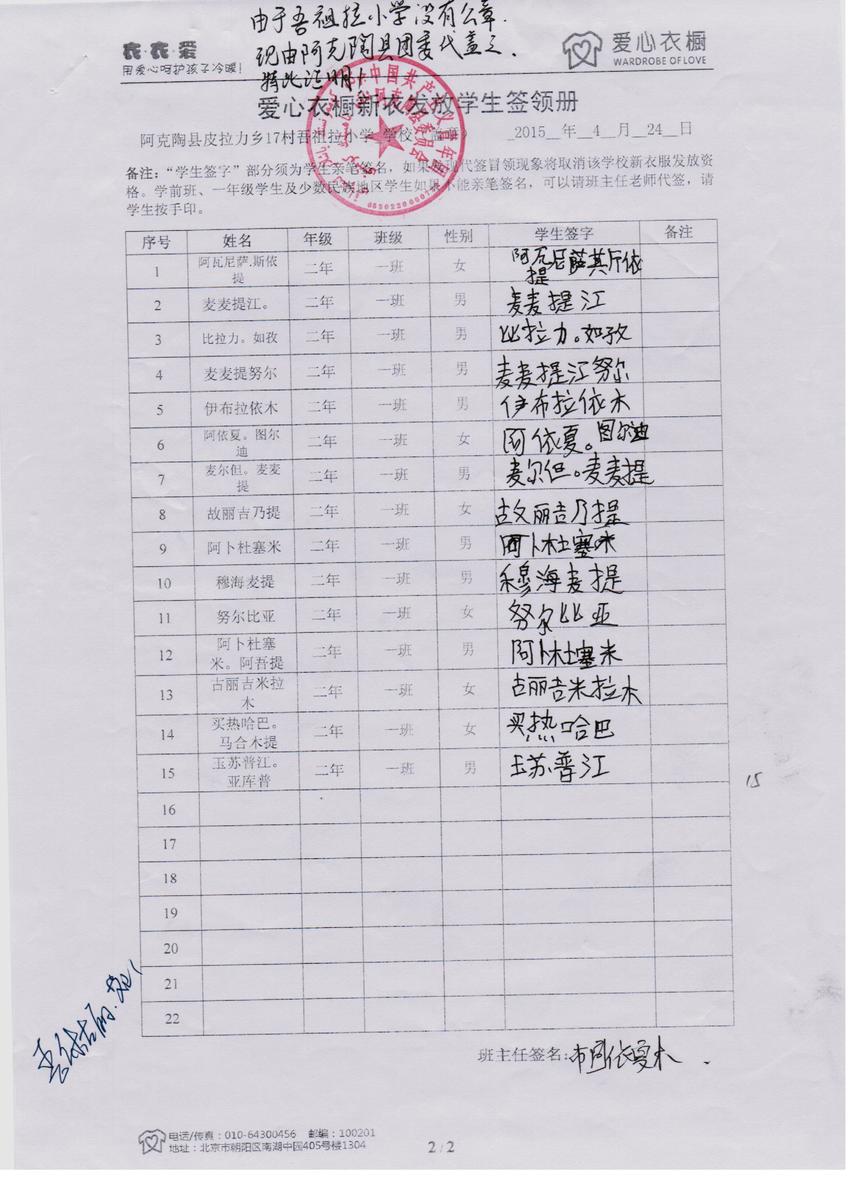 由于吾祖拉小学没有公章.
现由阿克陶县团委代盖之.
特此证明!
衣·衣·爱
用爱心呵护孩子冷暖!
爱心衣橱
WARDROBE OF LOVE
爱心衣橱新衣发放学生签领册
阿克陶县皮拉力乡17村吾祖拉小学 学校(盖章) _2015__年__4__月__24__日
备注:“学生签字”部分须为学生亲笔签名,如果发现代签冒领现象将取消该学校新衣服发放资
格。学前班、一年级学生及少数民族地区学生如果不能亲笔签名,可以请班主任老师代签,请
学生按手印。
序号 姓名 年级 班级 性别 学生签字 备注
1 阿瓦尼萨.斯依提 二年 一班 女
2 麦麦提江。 二年 一班 男 麦麦提江
3 比拉力。如孜 二年 一班 男 比拉力。如孜
4 麦麦提努尔 二年 一班 男 麦麦提江努尔
5 伊布拉依木 二年 一班 男 伊布拉依木
6 阿依夏。图尔迪 二年 一班 女 阿依夏。图尔迪
7 麦尔但。麦麦提 二年 一班 男 麦尔但。麦麦提
8 故丽吉乃提 二年 一班 女 故丽吉乃提
9 阿卜杜塞米 二年 一班 男 阿卜杜塞米
10 穆海麦提 二年 一班 男 穆海麦提
11 努尔比亚 二年 一班 女 努尔比亚
12 阿卜杜塞米。阿吾提 二年 一班 男 阿卜杜塞米
13 古丽吉米拉木 二年 一班 女 古丽吉米拉木
14 买热哈巴。马合木提 二年 一班 女 买热哈巴
15 玉苏普江。亚库普 二年 一班 男 玉苏普江
15
16
17
18
19
20
21
22
班主任签名:布阿依夏木
电话/传真:010-64300456 邮编:100201
地址:北京市朝阳区南湖中园405号楼1304
2/2